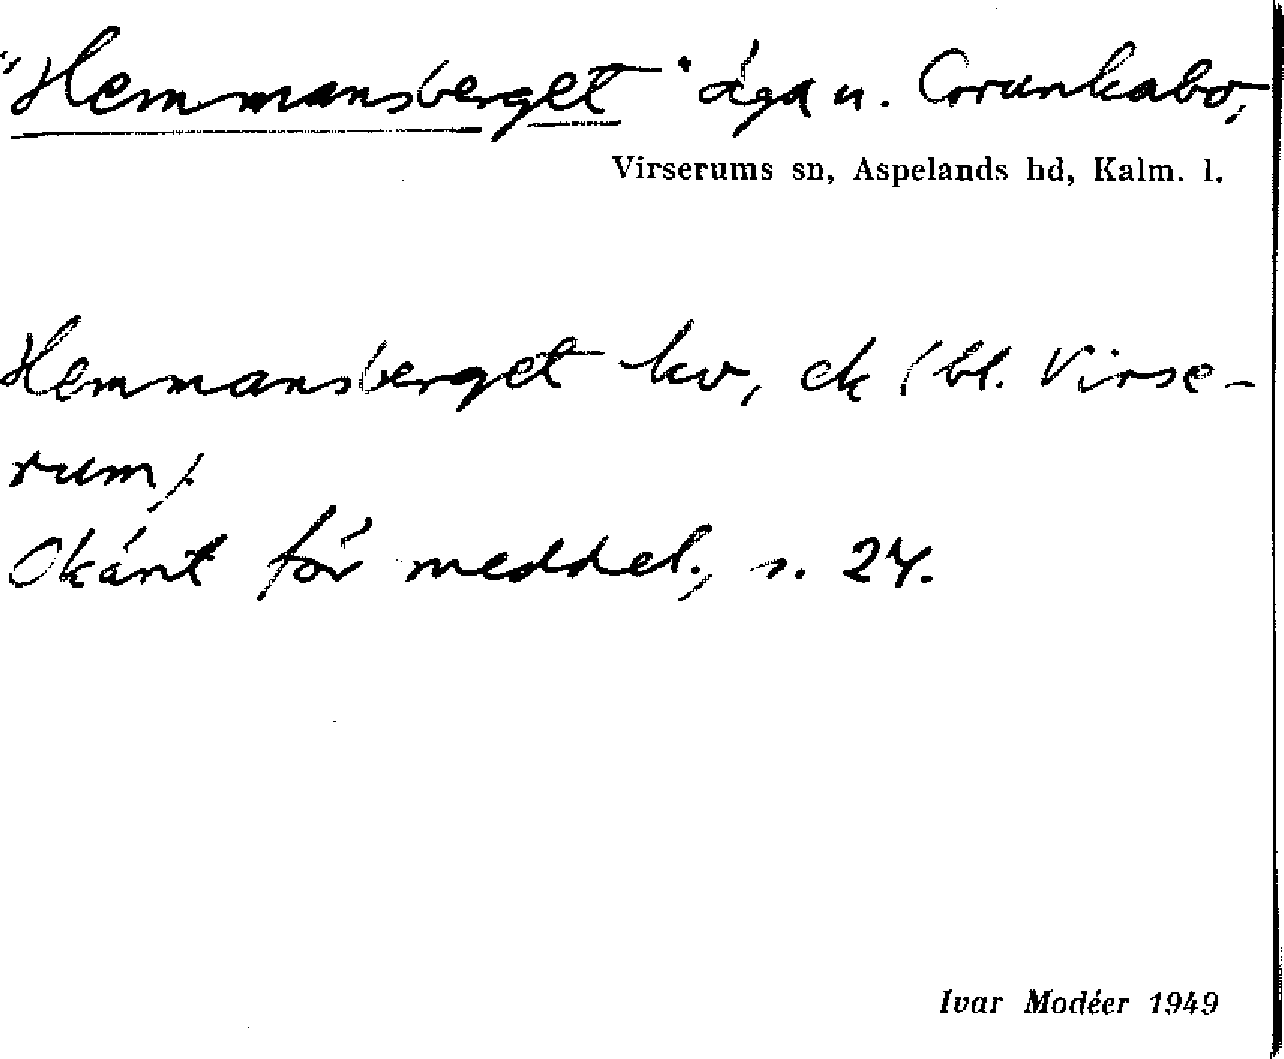 "Hemmansberget" äga u. Grunkabo,
Virserums sn, Aspelands hd, Kalm. l.
Hemmansberget kv, ek (bl. Virse-
rum).
Okänt för meddel., s. 24.
Ivar Modéer 1949